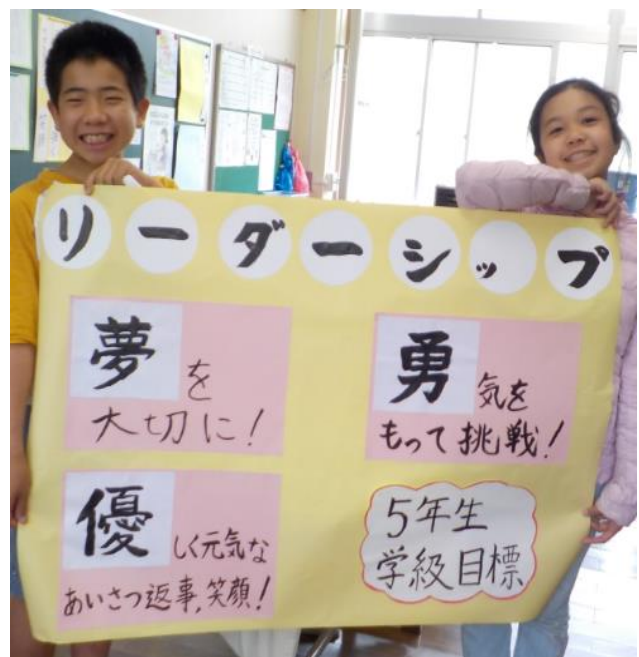 リーダーシップ
夢を
大切に!
勇気を
もって挑戦!
優しく元気な
あいさつ返事,笑顔!
5年生
学級目標